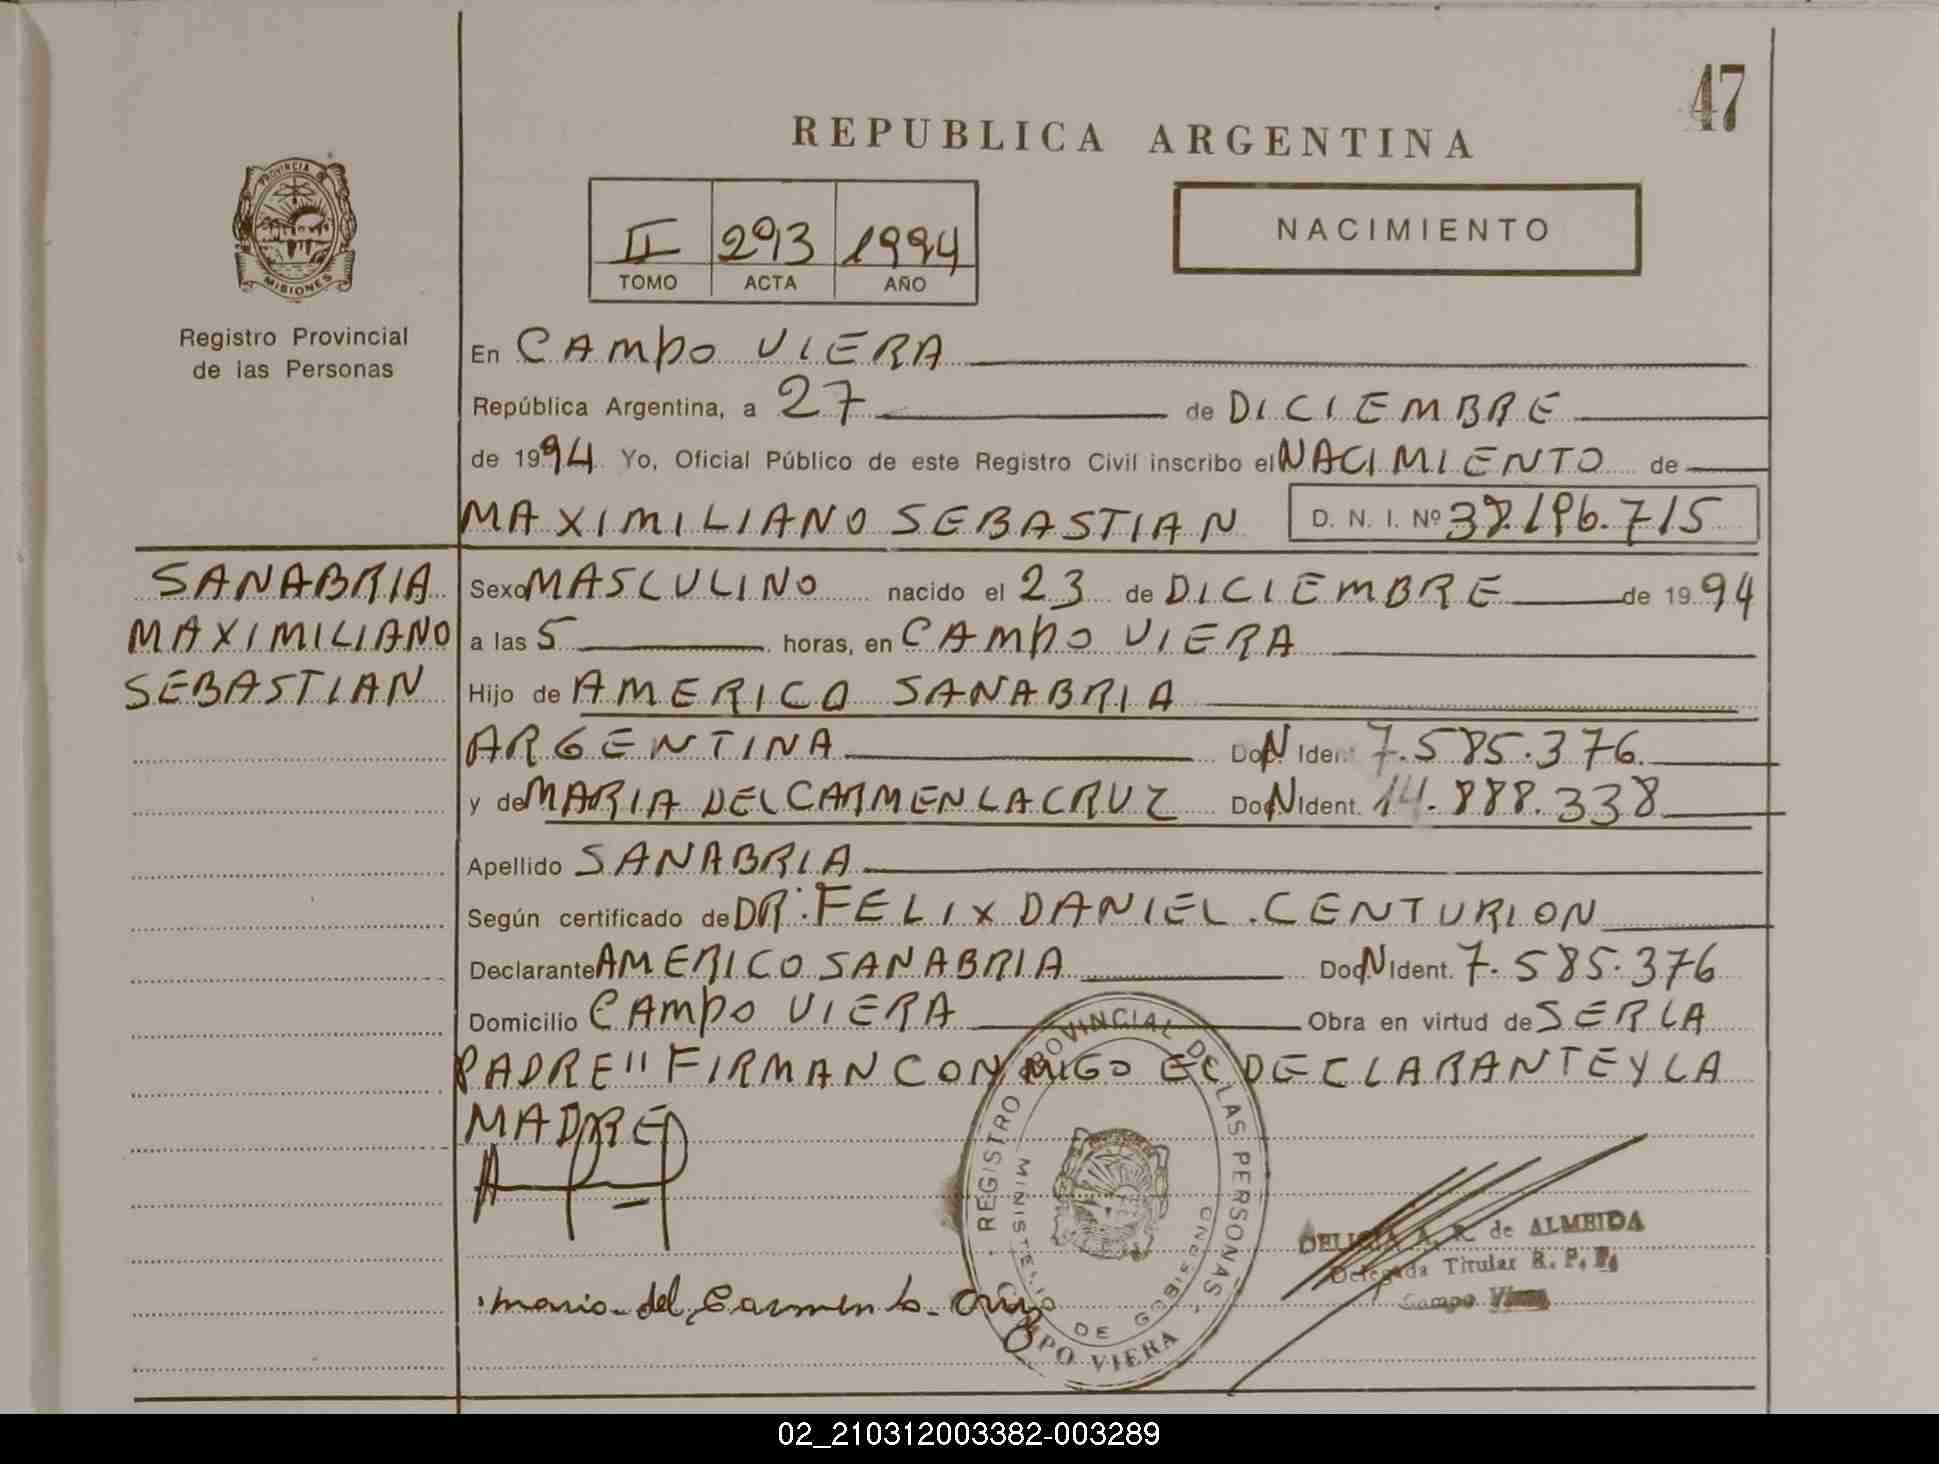 47
REPUBLICA ARGENTINA
PROVINCIA DE
MISIONES
Registro Provincial
de las Personas
II 293 1994
TOMO ACTA AÑO
NACIMIENTO
En CAMPO VIERA
República Argentina, a 27 de DICIEMBRE
de 1994 Yo, Oficial Público de este Registro Civil inscribo el NACIMIENTO de
MAXIMILIANO SEBASTIAN D. N. I. Nº 38.196.715
SANABRIA
MAXIMILIANO
SEBASTIAN
Sexo MASCULINO nacido el 23 de DICIEMBRE de 1994
a las 5 horas, en CAMPO VIERA
Hijo de AMERICO SANABRIA
ARGENTINA Doc N Ident. 7.585.376
y de MARIA DEL CARMEN LA CRUZ Doc N Ident. 14.888.338
Apellido SANABRIA
Según certificado de DR. FELIX DANIEL CENTURION
Declarante AMERICO SANABRIA Doc N Ident. 7.585.376
Domicilio CAMPO VIERA Obra en virtud de SER LA
PADRE" FIRMAN CONMIGO EL DECLARANTE Y LA
MADRE
Maria del Carmen La Cruz
REGISTRO PROVINCIAL DE LAS PERSONAS
MINISTERIO DE GOBIERNO
CAMPO VIERA
DELICIA A. R. de ALMEIDA
Delegada Titular R. P. P.
Campo Viera
02_210312003382-003289